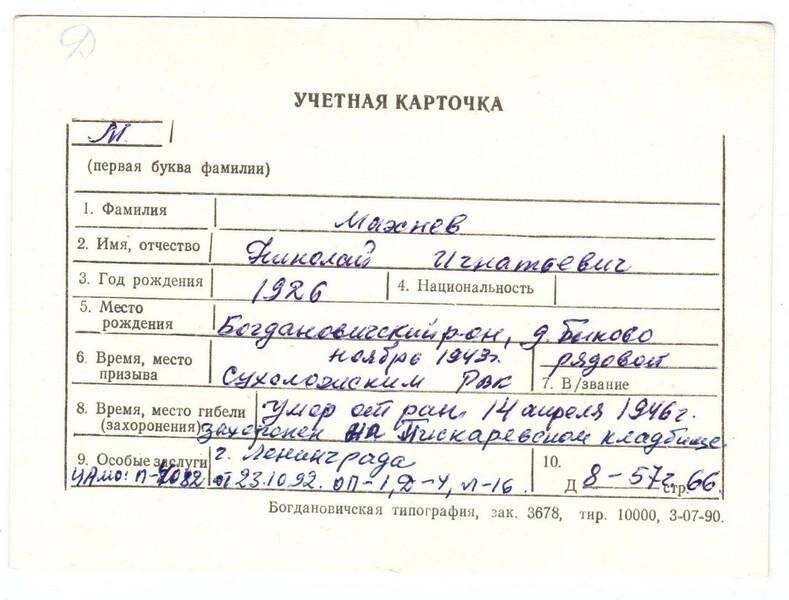 Д
УЧЕТНАЯ КАРТОЧКА
М
(первая буква фамилии)
1. Фамилия Махнев
2. Имя, отчество Николай Игнатьевич
3. Год рождения 1926 4. Национальность
5. Место рождения Богдановичский р-он, д. Быково
6. Время, место призыва ноябрь 1943г. Сухоложским РВК
7. В/звание рядовой
8. Время, место гибели (захоронения) Умер от ран 14 апреля 1946 г.
захоронен на Пискаревском кладбище
г. Ленинграда
9. Особые заслуги
ЦАМО: п-7082 от 23.10.92. ОП-1, Д-4, л-16.
10. Д 8-57г стр. 66.
Богдановичская типография, зак. 3678, тир. 10000, 3-07-90.